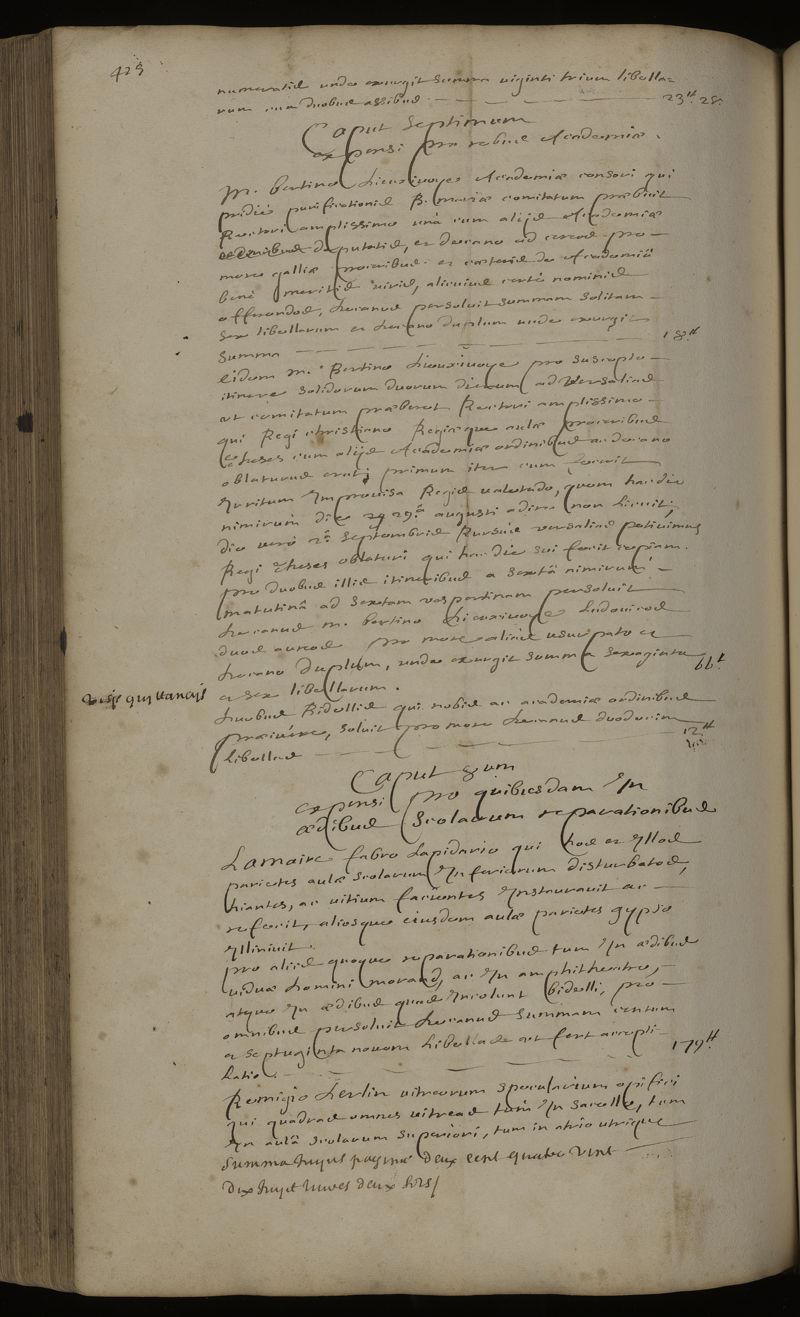 425
numeratis unde exurgit summa viginti trium libella=
rum cum duobus assibus 23tt 2s.
Caput Septimum
expensi pro rebus Academiæ.
M. Bertino Dieuxivoye Academiæ censori qui
pridiè purificationis B. mariæ comitatum præbuit
Rectori amplissimo unà cum alijs Academiæ
deputatis, et decano ad cereos pro
more galliæ proceribus et cæteris de Academiâ
benè meritis viris, alicuius certè nominis
offerendos, decanus persolvit summam solitam
sex libellarum et decano duplum unde exurgit
summa 18tt
Eidem M. Bertino Dieuxivoye pro suscepto
itinere solidorum duorum dierum ad Versalias
ut comitatum præberet Rectori amplissimo
qui Regi christiano Regiæque aulæ proceribus
theses cum alijs Academiæ ordinibus ac decano
oblaturus erat, primum iter cum fecerit
Irritum Improvisa Regis valetudo, quem hac die
nimirum die 29â augusti adire non licuit;
die verò 2â septembris Rursùs versalias petivimus
Regi theses oblaturi qui hac die sui fecit copiam.
pro duobus illis itineribus a sextâ nimirum
matutinâ ad sextam vespertinam persolvit
decanus M. bertino Dieuxivoye Ludovicos
duos aureos pro more aliàs usurpato et
decano duplum, unde exurgit summa sexaginta
et sex libellarum. 66tt
duobus Bidellis qui nobis ac academiæ ordinibus
præivêre, solvit pro more decanus duodecim
libellas 12tt
Caput 8um
expensi pro quibusdam In
ædibus Scolarum reparationibus
Lamaire fabro Lapidario qui hos et Illos
parietes aulæ scolarum Inferiorum disturbatos,
hiantes, ac vitium facientes Instauravit ac
refecit, aliosque eiusdem aulæ parietes gypso
Illinivit.
pro alijs quoque reparationibus tum In ædibus
viduæ Domini morand, ac In amphitheatro,
atque In ædibus quas Incolunt bidelli, pro
omnibus persolvit decanus summam centum
et septuginta novem Libellas ut fert accepti
Latio. 179tt
Remigio Lerlin vitreorum specularium opifici
qui quadras omnes vitreas tum In sacello, tum
In aulâ scolarum superiori, tum in atrio utrique
Summa hujus paginæ deux cent quatre vint
dix huyt livres deux sols